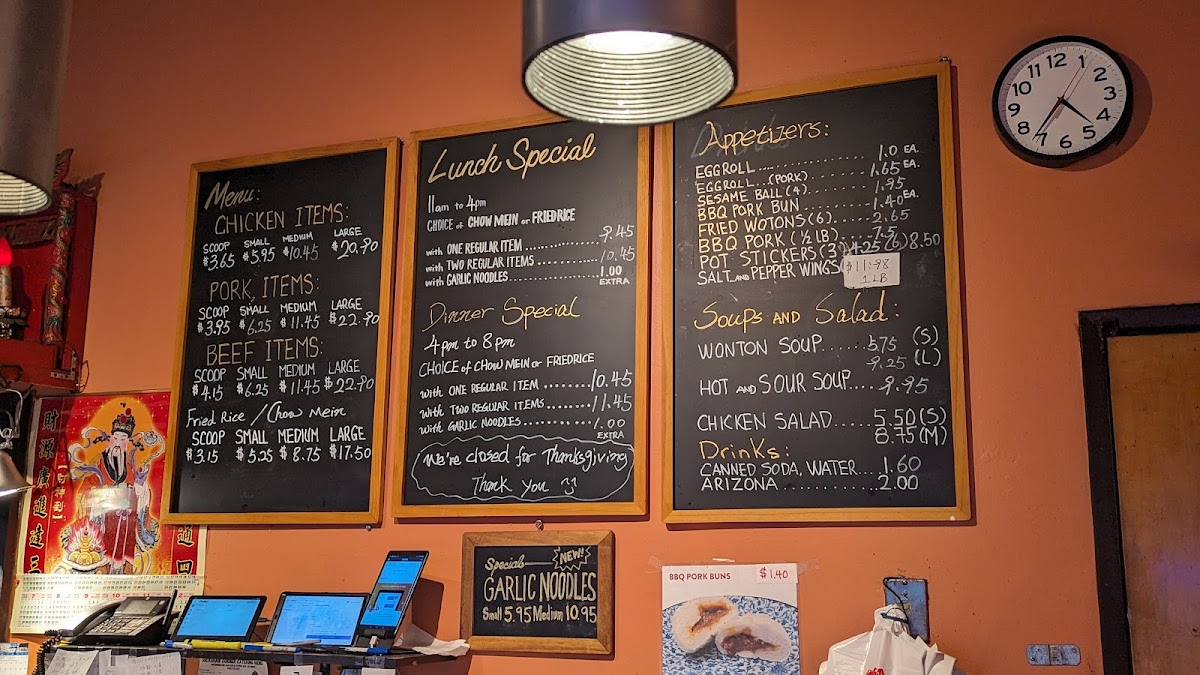 Menu:
CHICKEN ITEMS:
SCOOP SMALL MEDIUM LARGE
$3.65 $5.95 $10.45 $20.90
PORK ITEMS:
SCOOP SMALL MEDIUM LARGE
$3.95 $6.25 $11.45 $22.90
BEEF ITEMS:
SCOOP SMALL MEDIUM LARGE
$4.15 $6.25 $11.45 $22.90
Fried Rice / Chow Mein
SCOOP SMALL MEDIUM LARGE
$3.15 $5.25 $8.75 $17.50
Lunch Special
11am to 4pm
CHOICE of CHOW MEIN or FRIEDRICE
with ONE REGULAR ITEM ............... 9.45
with TWO REGULAR ITEMS ............ 10.45
with GARLIC NOODLES ............... 1.00
EXTRA
Dinner Special
4pm to 8pm
CHOICE of CHOW MEIN or FRIEDRICE
with ONE REGULAR ITEM ........ 10.45
with TWO REGULAR ITEMS ......... 11.45
with GARLIC NOODLES ............ 1.00
EXTRA
We're closed for Thanksgiving
Thank you
Appetizers:
EGGROLL .................. 1.0 EA.
EGGROLL...(PORK)......... 1.65 EA.
SESAME BALL (4)......... 1.95
BBQ PORK BUN ........... 1.40 EA.
FRIED WOTONS (6)...... 2.65
BBQ PORK (½ LB)..... 7.5
POT STICKERS (3) 4.25 (6) 8.50
SALT AND PEPPER WINGS $11.98
1 LB
Soups AND Salad:
WONTON SOUP...... 5.75 (S)
9.25 (L)
HOT AND SOUR SOUP.... 9.95
CHICKEN SALAD..... 5.50 (S)
8.75 (M)
Drinks:
CANNED SODA, WATER.... 1.60
ARIZONA ............. 2.00
12 1 2 3 4 5 6 7 8 9 10 11
財源廣進達三
財神到
通四
Specials NEW!
GARLIC NOODLES
Small 5.95 Medium 10.95
BBQ PORK BUNS $1.40